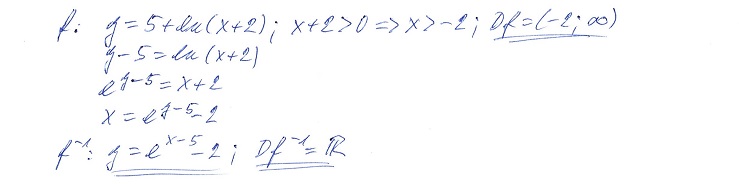 f: y = 5 + ln(x+2); x+2>0 => x>-2; Df = (-2; ∞)
y-5 = ln(x+2)
e^{y-5} = x+2
x = e^{y-5} - 2
f^{-1}: y = e^{x-5} - 2; Df^{-1} = ℝ